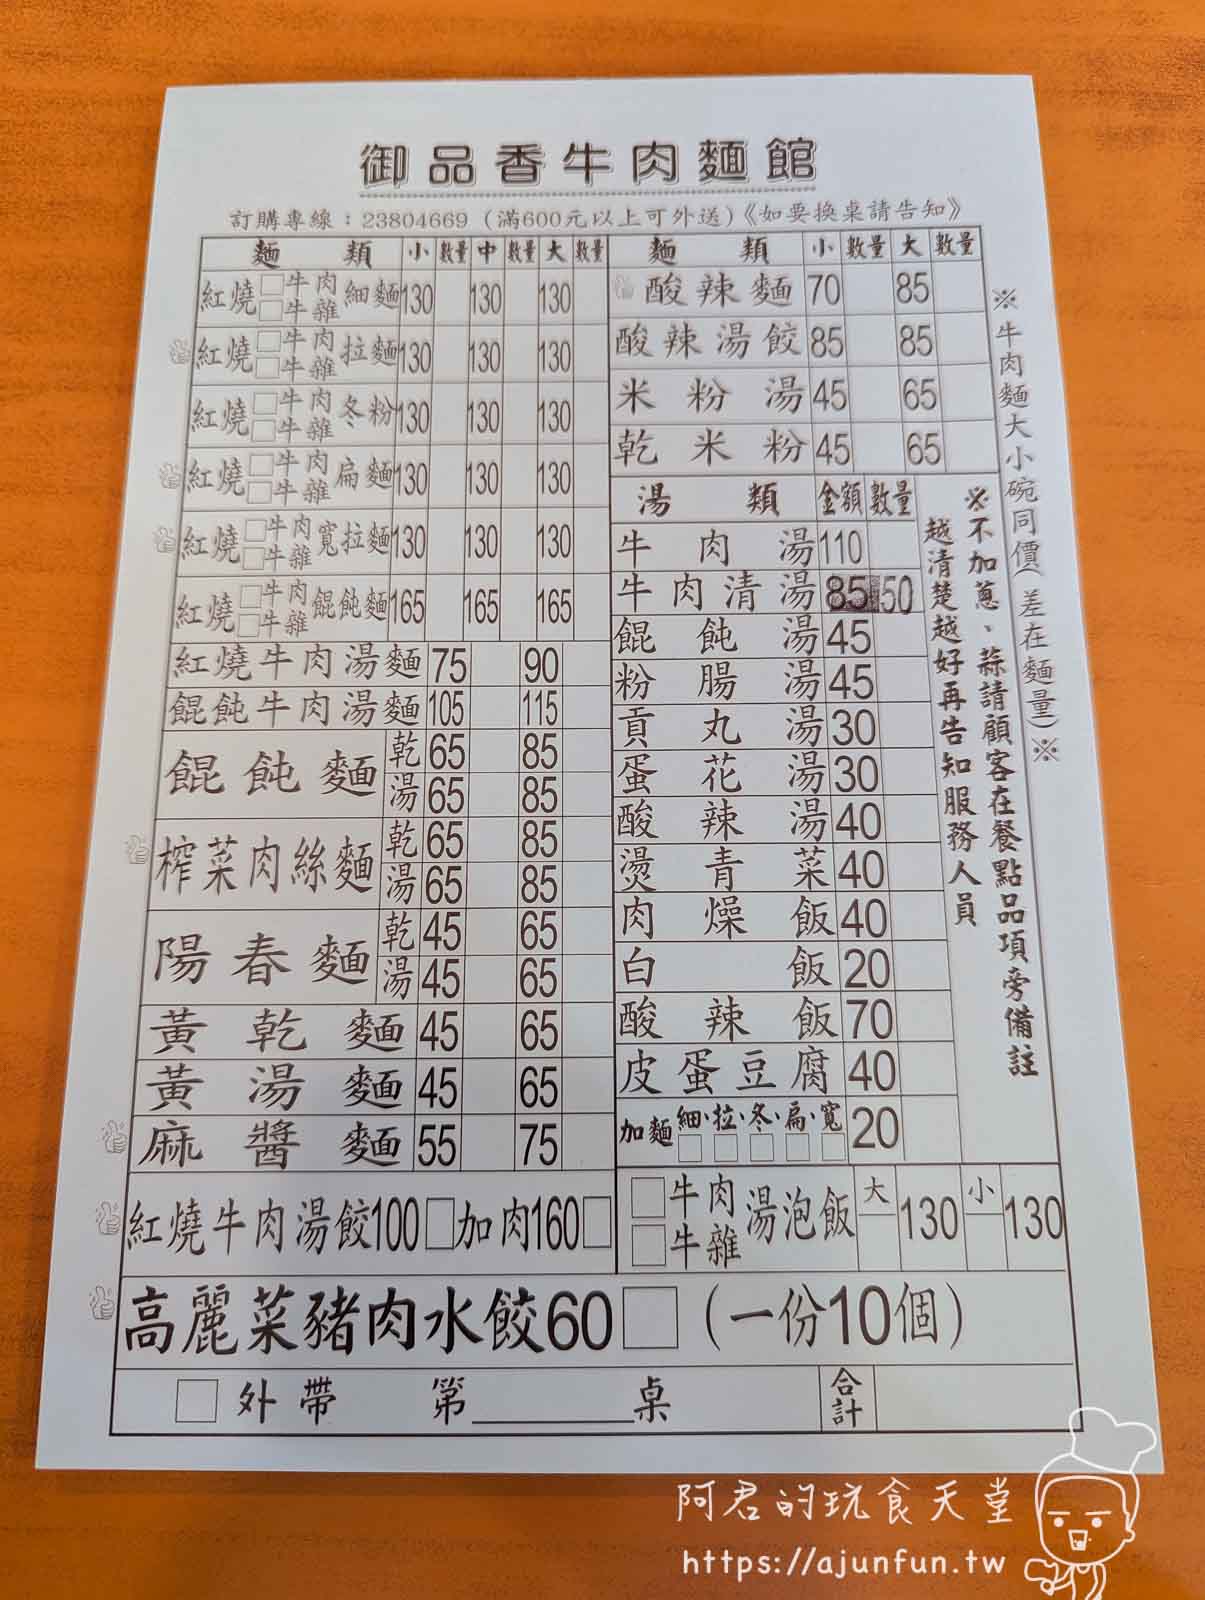 御品香牛肉麵館
訂購專線：23804669（滿600元以上可外送）《如要換桌請告知》
麵類 小 數量 中 數量 大 數量
紅燒 □牛肉 □牛雜 細麵 130 130 130
紅燒 □牛肉 □牛雜 拉麵 130 130 130
紅燒 □牛肉 □牛雜 冬粉 130 130 130
紅燒 □牛肉 □牛雜 扁麵 130 130 130
紅燒 □牛肉 □牛雜 寬拉麵 130 130 130
紅燒 □牛肉 □牛雜 餛飩麵 165 165 165
紅燒牛肉湯麵 75 90
餛飩牛肉湯麵 105 115
餛飩麵 乾 65 85
湯 65 85
榨菜肉絲麵 乾 65 85
湯 65 85
陽春麵 乾 45 65
湯 45 65
黃乾麵 45 65
黃湯麵 45 65
麻醬麵 55 75
紅燒牛肉湯餃100□加肉160□
麵類 小 數量 大 數量
酸辣麵 70 85
酸辣湯餃 85 85
米粉湯 45 65
乾米粉 45 65
湯類 金額 數量
牛肉湯 110
牛肉清湯 85 50
餛飩湯 45
粉腸湯 45
貢丸湯 30
蛋花湯 30
酸辣湯 40
燙青菜 40
肉燥飯 40
白飯 20
酸辣飯 70
皮蛋豆腐 40
加麵 細、拉、冬、扁、寬 20
□牛肉 □牛雜 湯泡飯 大 130 小 130
※不加蔥、蒜請顧客在餐點品項旁備註
越清楚越好再告知服務人員
※牛肉麵大小碗同價(差在麵量)※
高麗菜豬肉水餃60□（一份10個）
□外帶 第____桌 合計
阿君的玩食天堂
https://ajunfun.tw